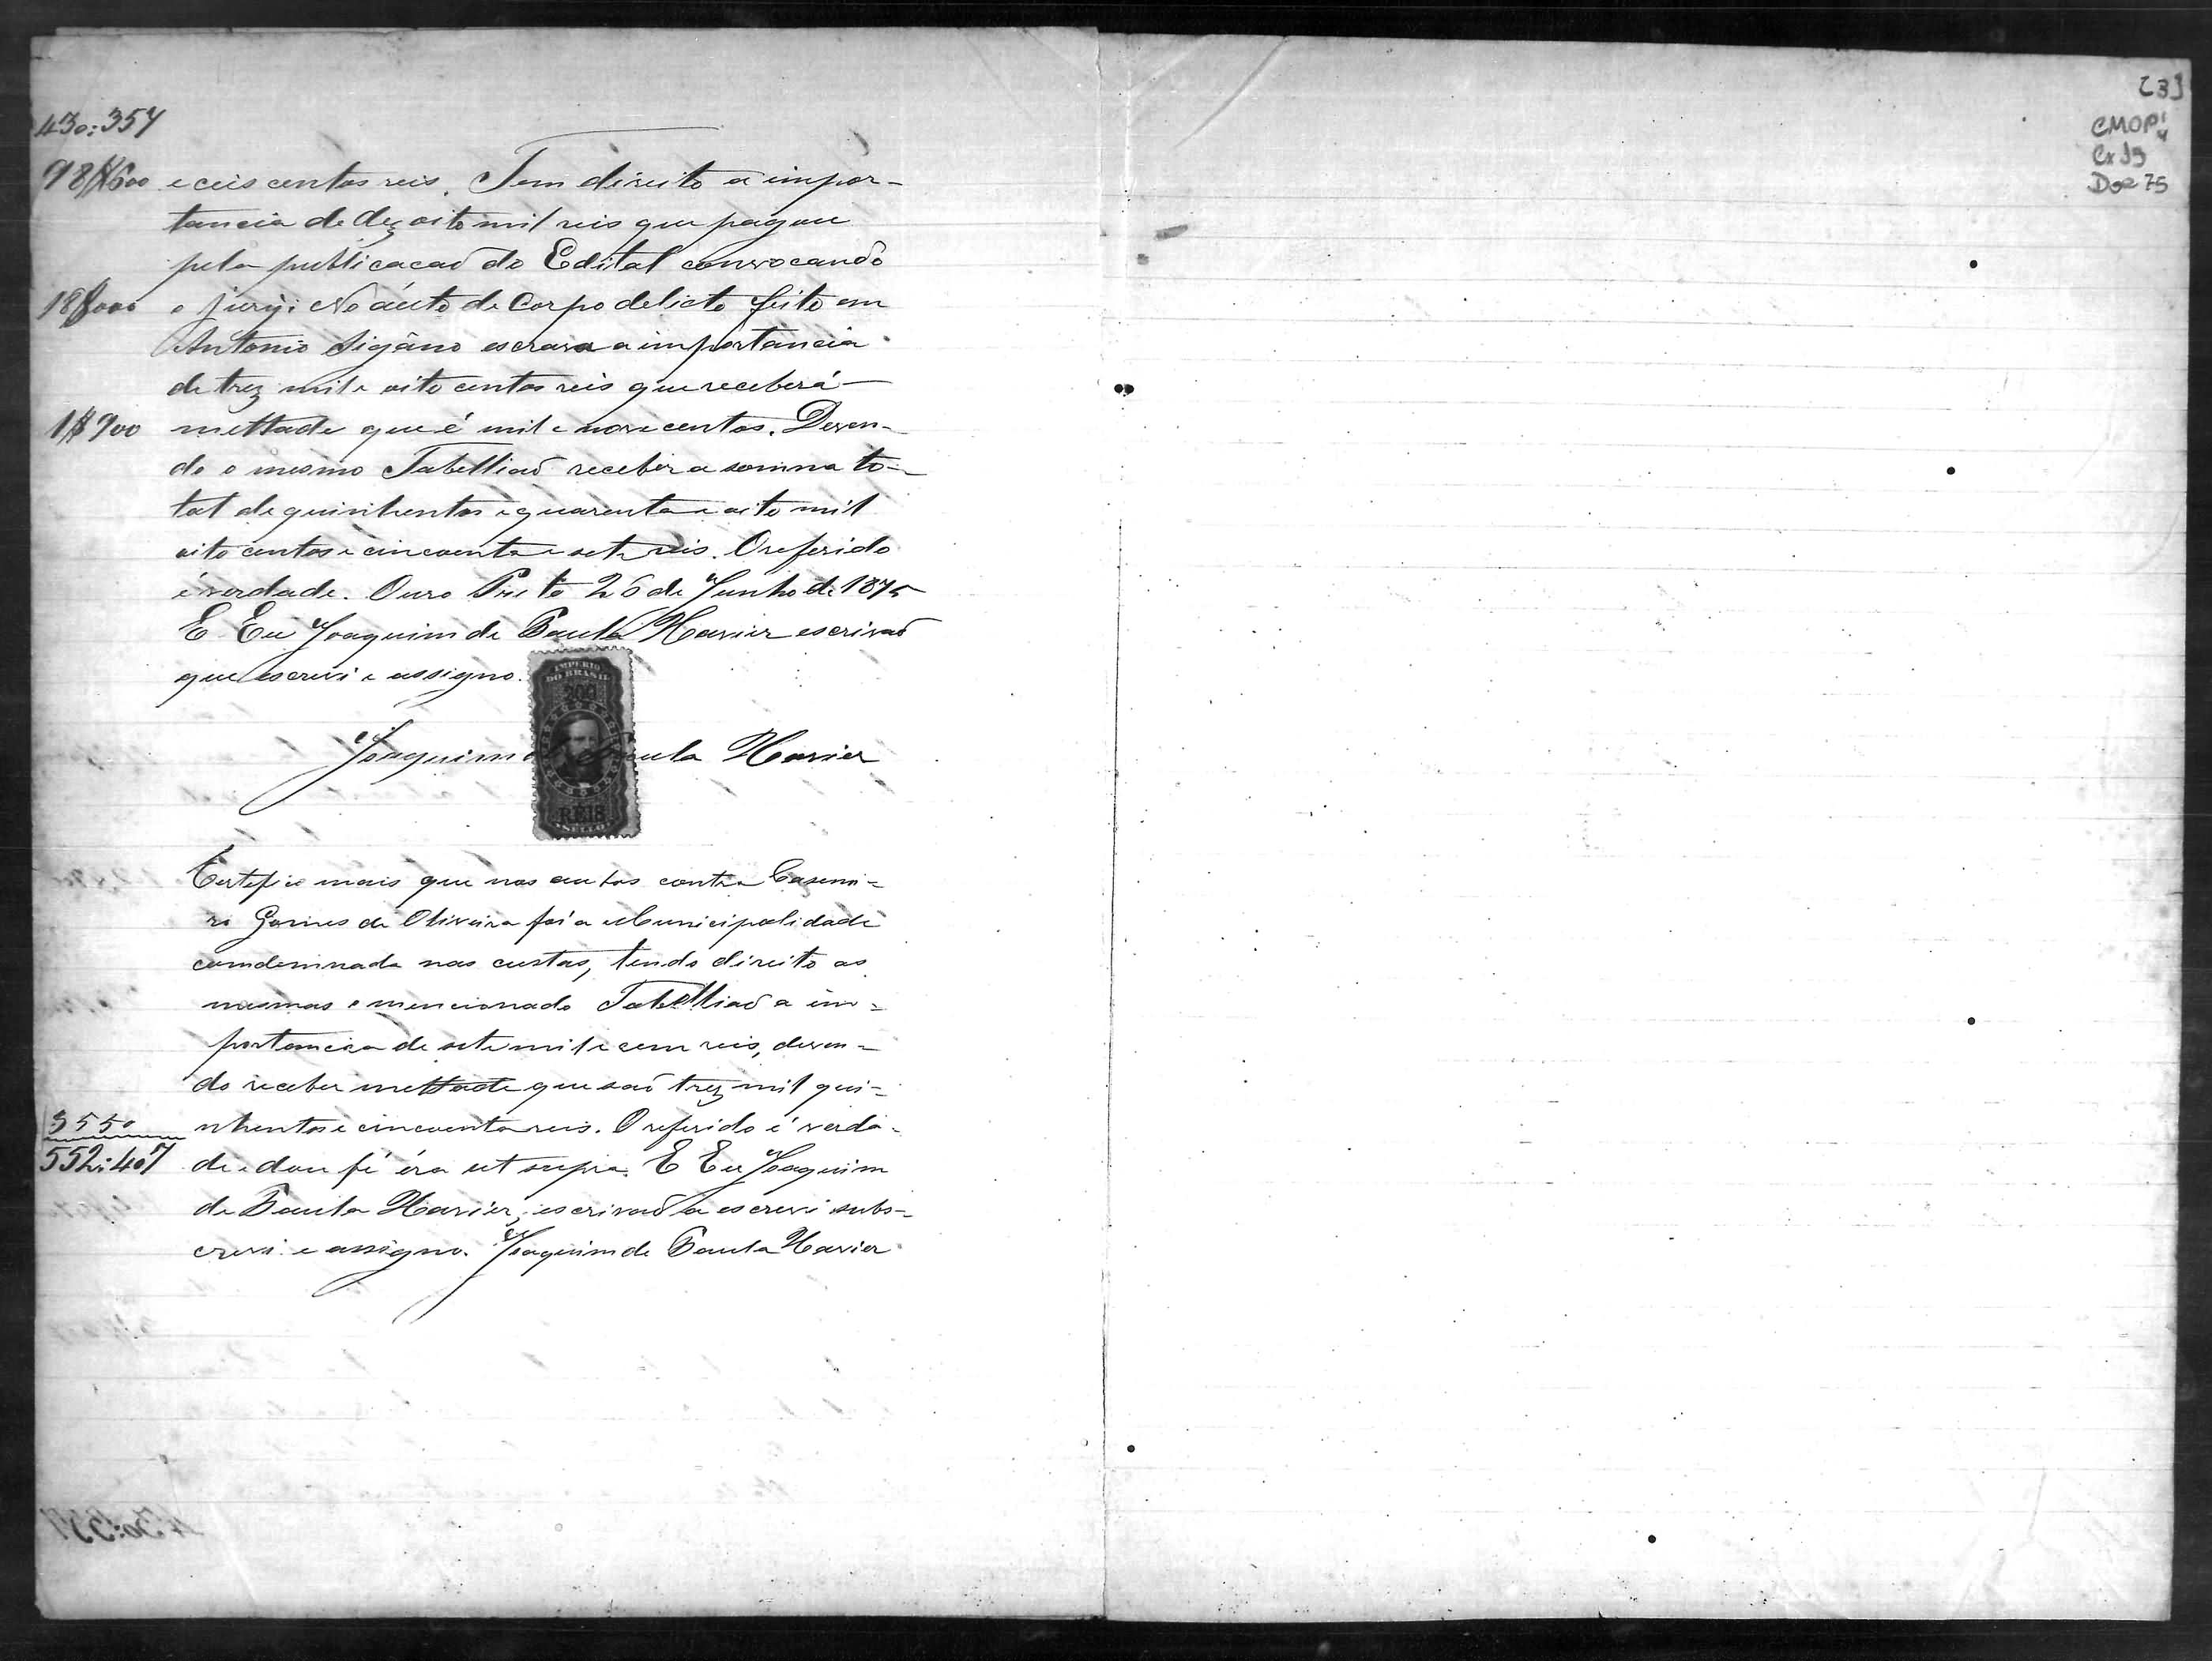 430:357
98$600 e ceis centos reis. Tem direito a impor-
tancia de dezoito mil reis que pagou
pela publicacaõ do Edital convocando
18$000 o jury: No áuto de Corpo delicto feito em
Antonio Sigâno escravo a importancia
de trez mil e oito centos reis que receberá
1$900 mettade que é mil e nove centos. Deven-
do o mesmo Tabelliaõ receber a somma to-
tal de quinhentos e quarenta e oito mil
oito centos e cincoenta e sete reis. O referido
é verdade. Ouro Preto 26 de Junho de 1875
E Eu Joaquim de Paula Xavier escrivaõ
que escrevi e assigno.
IMPERIO
DO BRASIL
200
Joaquim de Paula Xavier
REIS
SELLO
Certefico mais que nos autos contra Casemi=
ro Gomes de Oliveira foi a Municipalidade
comdemnada nas custas, tendo direito as
mesmas o mencionado Tabelliaõ a im=
portancia de sete mil e cem reis, deven=
do receber mettade que saõ trez mil qui=
3550 nhentos e cincoenta reis. O referido é verda-
552:407 de e dou fé éra ut supra. E Eu Joaquim
de Paula Xavier, escrivaõ a escrevi subs-
crevi e assigno. Joaquim de Paula Xavier
[3]
CMOP
Cx 19
Doc 75